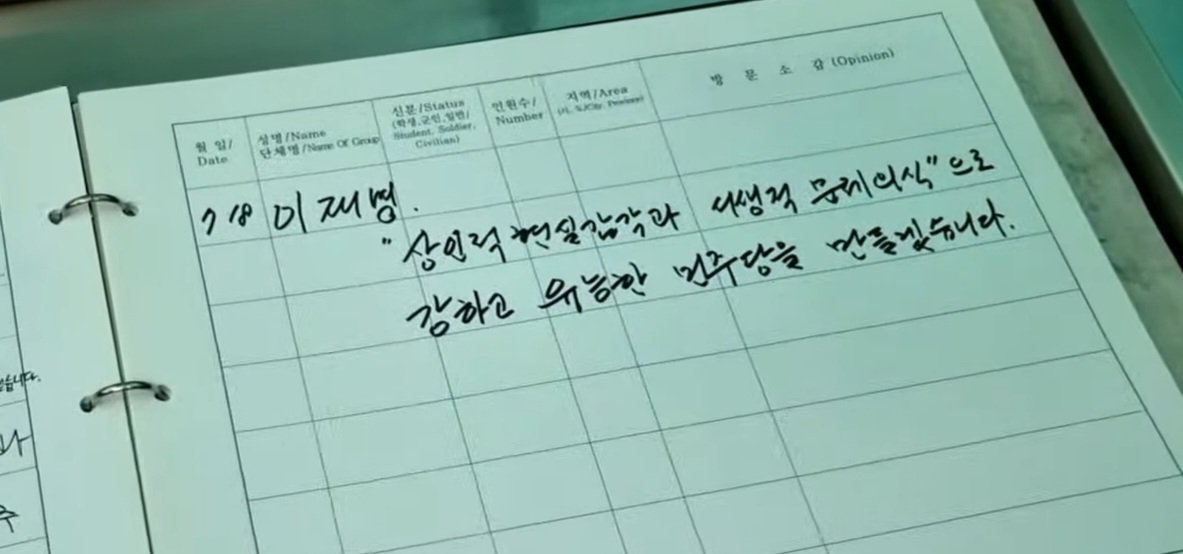 월 일/ Date
성명/Name 단체명/Name Of Group
신분/Status (학생,군인,일반/ Student, Soldier, Civilian)
인원수/ Number
지역/Area
방 문 소 감 (Opinion)
7 18 이재명.
"상인적 현실감각과 서생적 문제의식"으로
강하고 유능한 민주당을 만들겠습니다.
습니다.